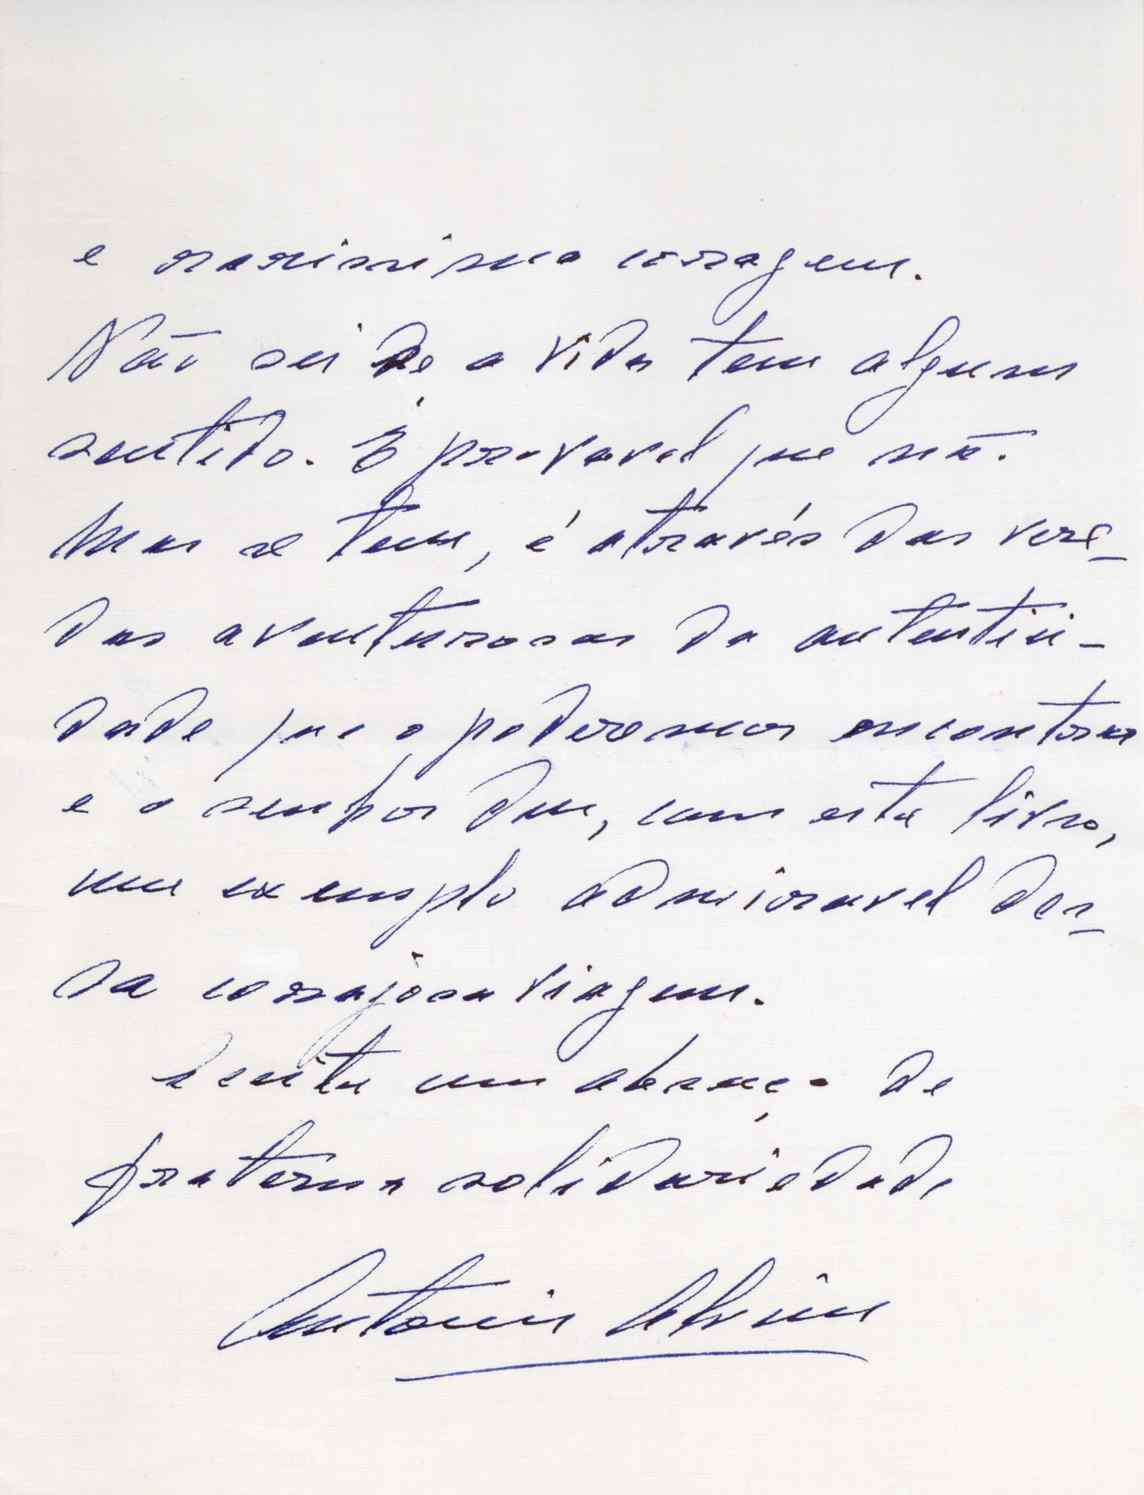 e raríssima coragem.
Não sei se a vida tem algum
sentido. É provavel que não.
Mas se tem, é através das vere-
das aventurosas da autentici-
dade que o poderemos encontrar
e o senhor deu, com este livro,
um exemplo admiravel des-
sa corajosa viagem.
Aceite um abraço de
fraterna solidariedade
Antonio